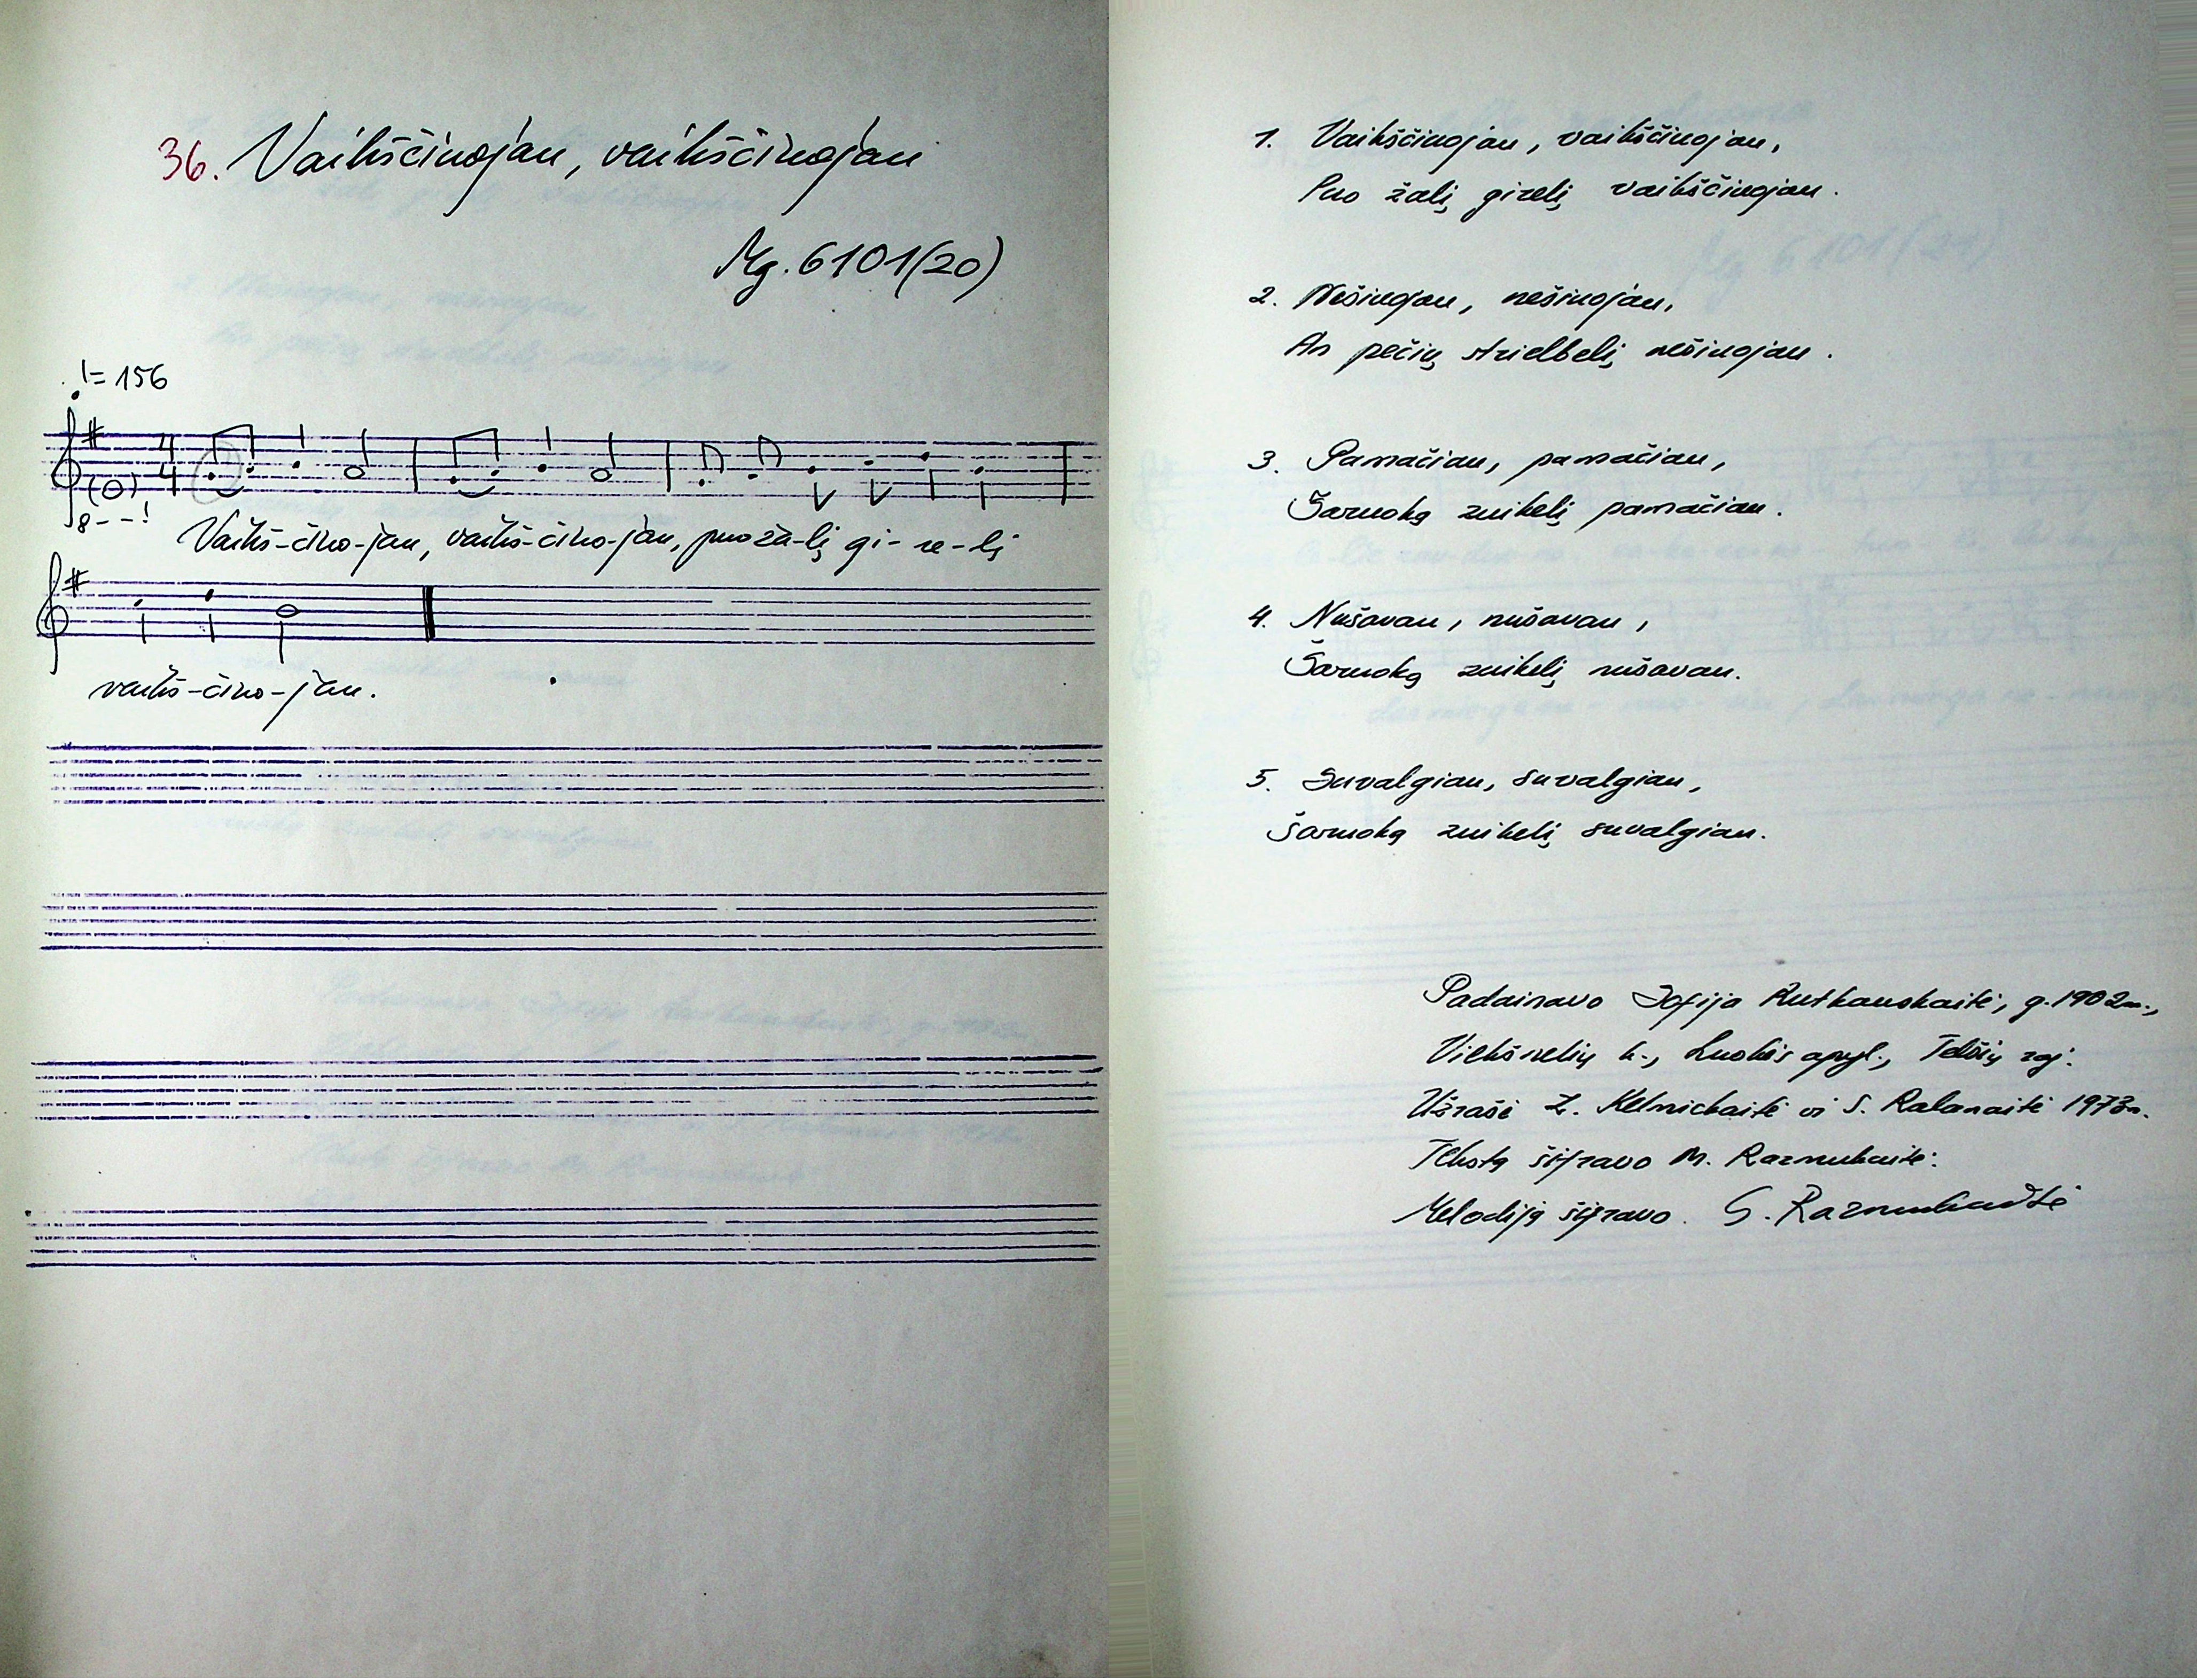 36. Vaikščinojau, vaikščinojau
Mg. 6101(20)
♩= 156
4/4
8--!
Vaikš-čino-jau, vaikš-čino-jau, puo ža-lį gi-re-lį
vaikš-čino-jau.
1. Vaikščinojau, vaikščinojau,
Puo žalį girelį vaikščinojau.
2. Nešinojau, nešinojau,
An pečių strielbelį nešinojau.
3. Pamačiau, pamačiau,
Šarnoką zuikelį pamačiau.
4. Nušavau, nušavau,
Šarnoką zuikelį nušavau.
5. Suvalgiau, suvalgiau,
Šarnoką zuikelį suvalgiau.
Padainavo Zofija Rutkauskaitė, g. 1902 m.,
Viekšnelių k., Luokės apyl., Telšių raj.
Užrašė Z. Kelmickaitė ir S. 1973 m.
Tekstą šifravo M. Razmukaitė.
Melodiją šifravo. S. Razmukaitė